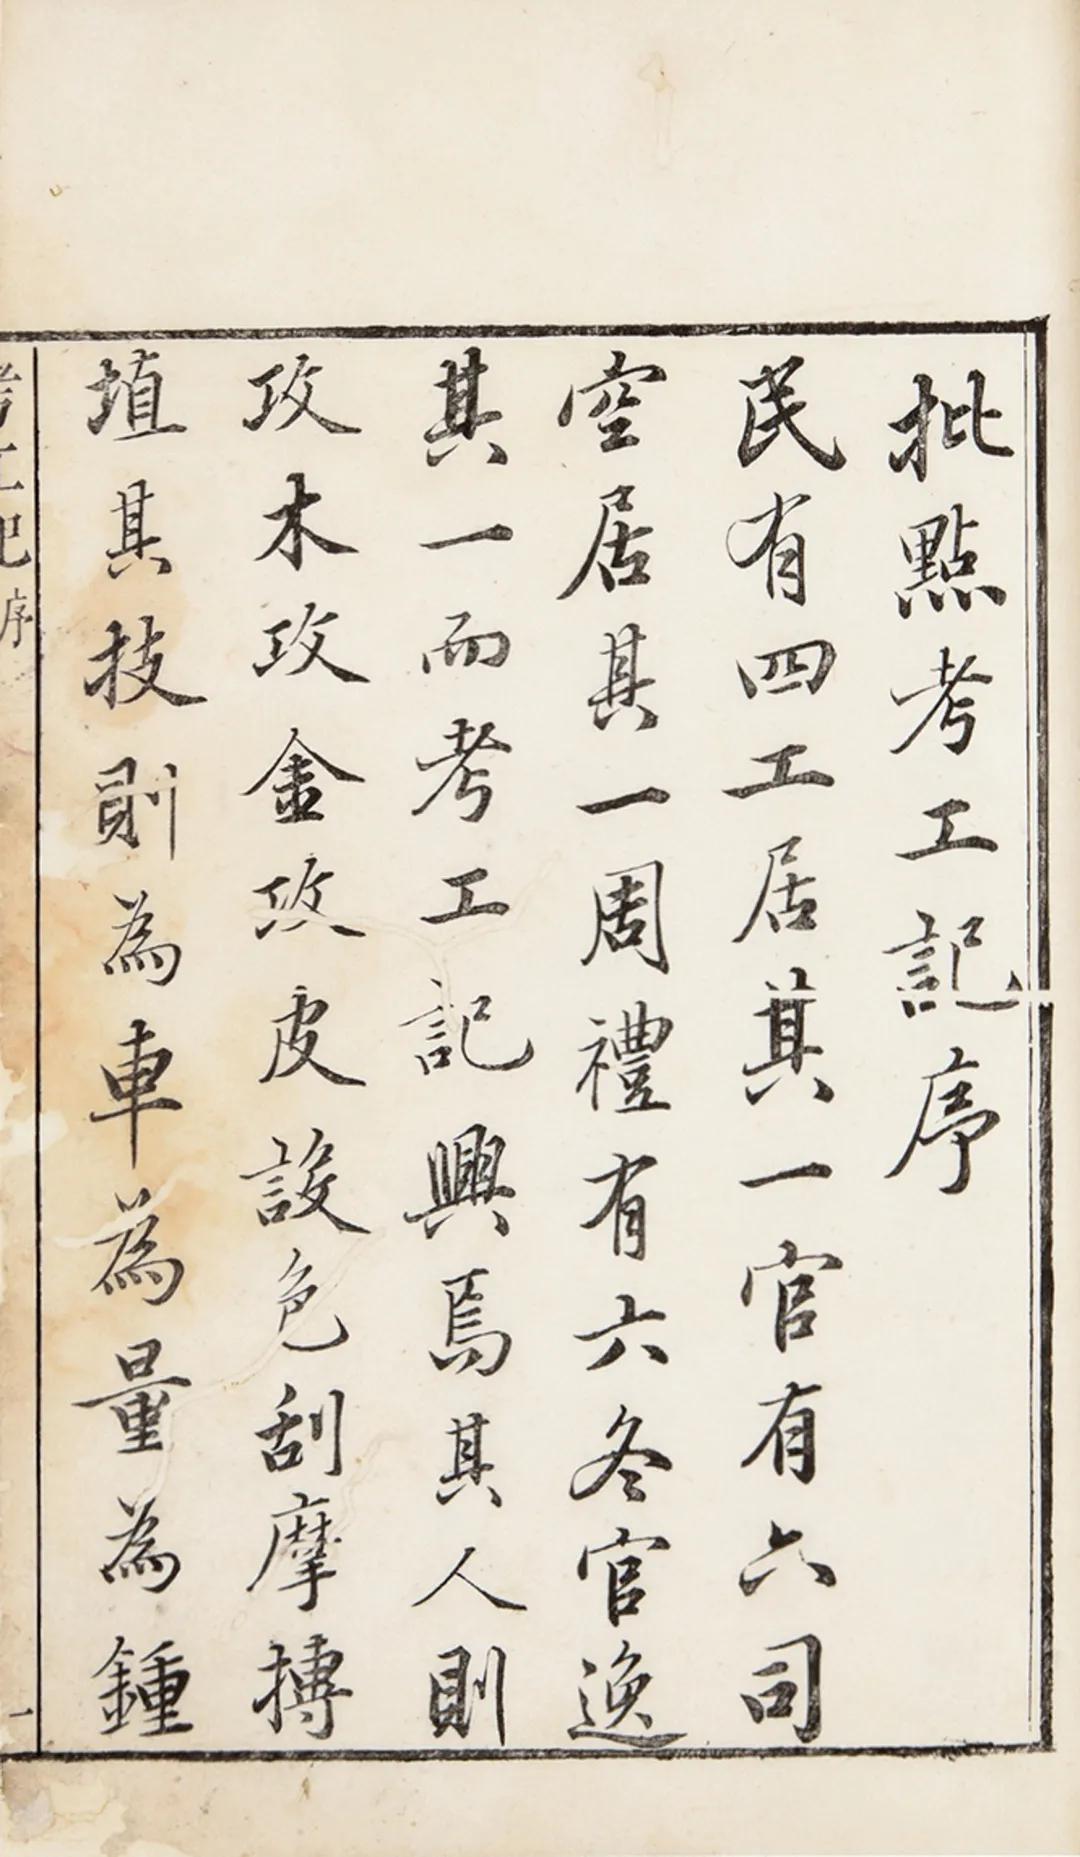 批點考工記序
民有四工居其一官有六司
空居其一周禮有六冬官逸
其一而考工記興焉其人則
攻木攻金攻皮設色刮摩摶
埴其技則為車為量為鍾
考工記序
一